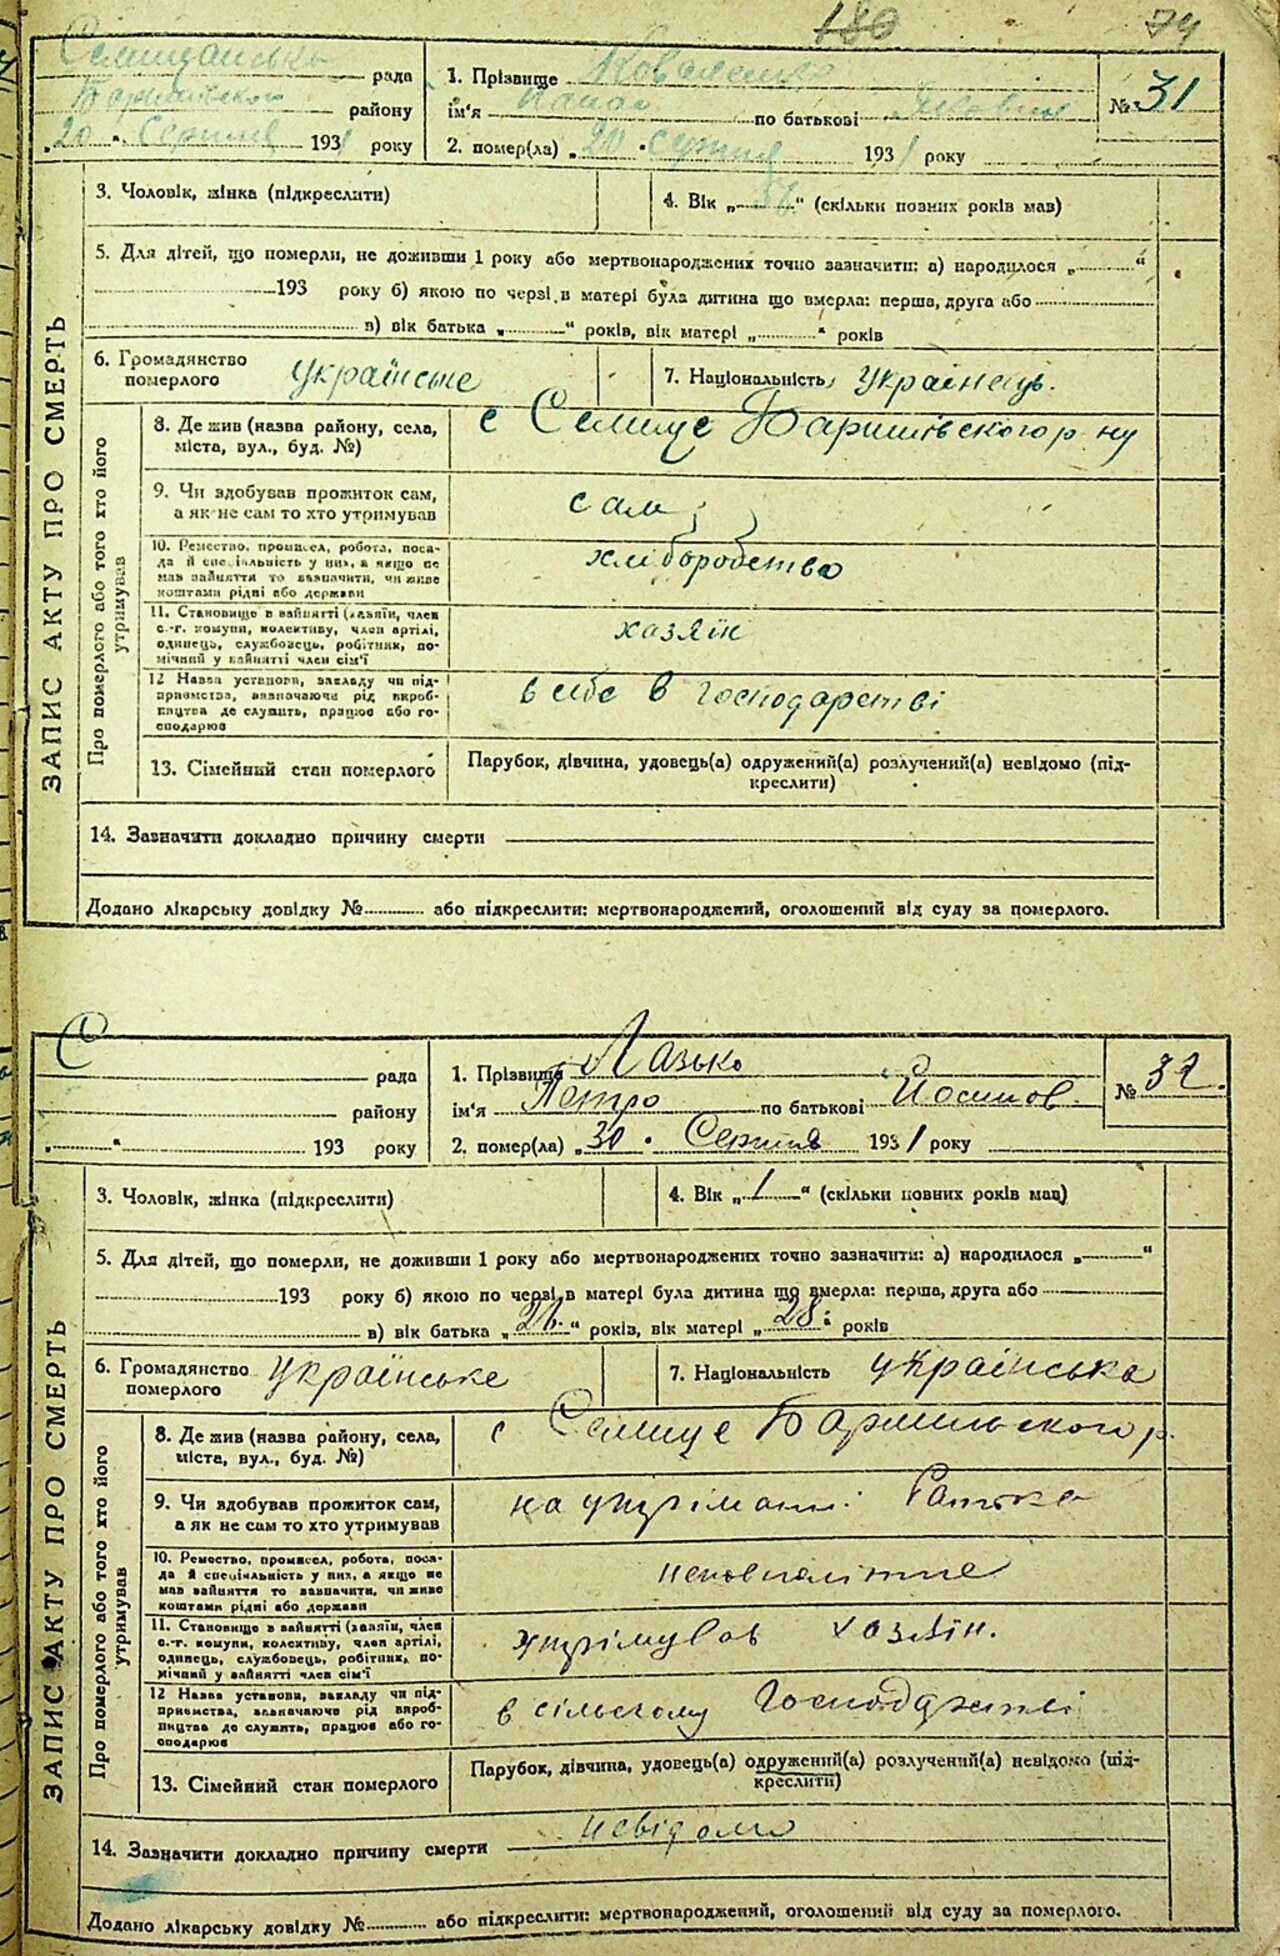 180 74
Селищанська рада
Баришівського району
„20“ Серпня 1931 року
1. Прізвище Коваленко
ім'я Панас по батькові Якович
2. помер(ла) „20“ серпня 1931 року
№ 31
ЗАПИС АКТУ ПРО СМЕРТЬ
3. Чоловік, жінка (підкреслити)
4. Вік „56“ (скільки повних років мав)
5. Для дітей, що померли, не доживши 1 року або мертвонароджених точно зазначити: а) народилося „ “
193 року б) якою по черзі в матері була дитина що вмерла: перша, друга або
в) вік батька „ “ років, вік матері „ “ років
6. Громадянство померлого українське
7. Національність українець.
Про померлого або того хто його утримував
8. Де жив (назва району, села, міста, вул., буд. №) с Селище Баришівского р ну
9. Чи здобував прожиток сам, а як не сам то хто утримував
сам
10. Ремество, промисел, робота, поса-
да й спеціяльність у них, а якщо не
мав зайняття то зазначити, чи живе
коштами рідні або держави
хліборобство
11. Становище в зайнятті (хазяїн, член
с.-г. комуни, колективу, член артілі,
одинець, службовець, робітник, по-
мічний у зайнятті член сім'ї
хазяїн
12 Назва установи, закладу чи під-
приємства, зазначаючи рід вироб-
ництва де служить, працює або го-
сподарює
в себе в господарстві
13. Сімейний стан померлого
Парубок, дівчина, удовець(а) одружений(а) розлучений(а) невідомо (під-
креслити)
14. Зазначити докладно причину смерти
Додано лікарську довідку № або підкреслити: мертвонароджений, оголошений від суду за померлого.
С рада
району
„ “ 193 року
1. Прізвище Лазько
ім'я Петро по батькові Йосипов.
2. помер(ла) „30“ Серпня 1931 року
№ 32.
ЗАПИС АКТУ ПРО СМЕРТЬ
3. Чоловік, жінка (підкреслити)
4. Вік „1“ (скільки повних років мав)
5. Для дітей, що померли, не доживши 1 року або мертвонароджених точно зазначити: а) народилося „ “
193 року б) якою по черзі в матері була дитина що вмерла: перша, друга або
в) вік батька „26.“ років, вік матері „28“ років
6. Громадянство померлого українське
7. Національність українська
Про померлого або того хто його утримував
8. Де жив (назва району, села, міста, вул., буд. №) с Селище Баришівского р.
9. Чи здобував прожиток сам, а як не сам то хто утримував
на утріманні Батька
10. Ремество, промисел, робота, поса-
да й спеціяльність у них, а якщо не
мав зайняття то зазначити, чи живе
коштами рідні або держави
неповнолітне
11. Становище в зайнятті (хазяїн, член
с.-г. комуни, колективу, член артілі,
одинець, службовець, робітник, по-
мічний у зайнятті член сім'ї
утрімував хазяїн.
12 Назва установи, закладу чи під-
приємства, зазначаючи рід вироб-
ництва де служить, працює або го-
сподарює
в сільському
13. Сімейний стан померлого
Парубок, дівчина, удовець(а) одружений(а) розлучений(а) невідомо (під-
креслити)
14. Зазначити докладно причину смерти невідомо
Додано лікарську довідку № або підкреслити: мертвонароджений, оголошений від суду за померлого.